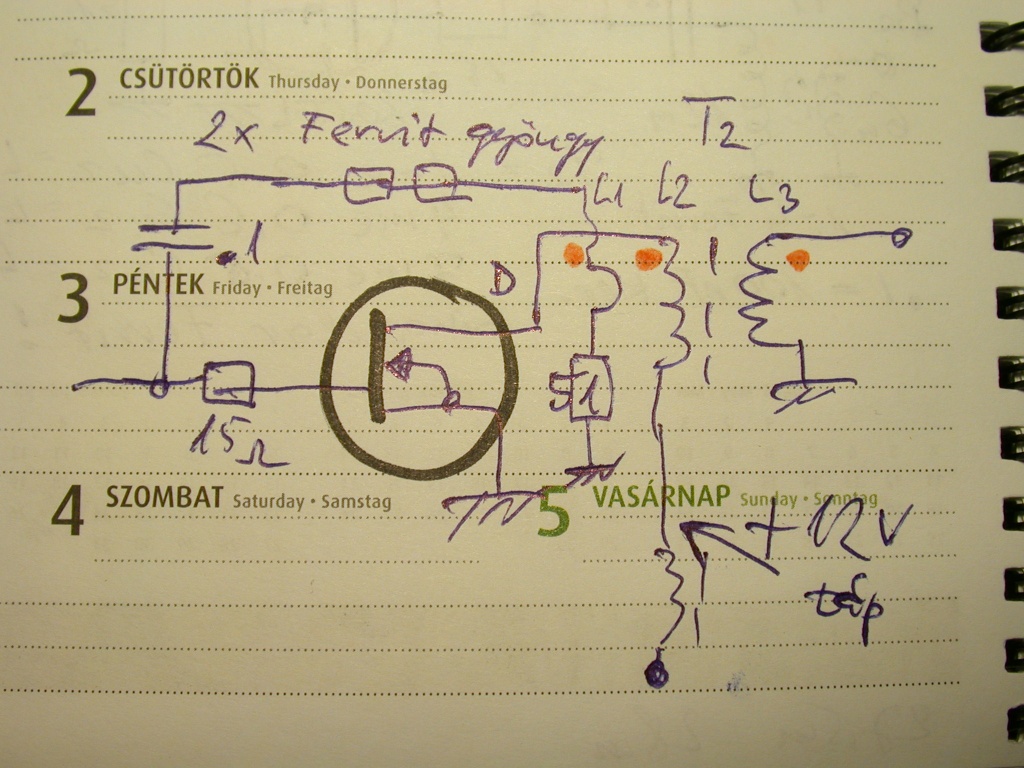 2 CSÜTÖRTÖK Thursday • Donnerstag
2x Ferrit gyöngy
T2
L1 L2 L3
.1
D
3 PÉNTEK Friday • Freitag
15Ω
51
4 SZOMBAT Saturday • Samstag
5 VASÁRNAP Sunday • Sonntag
+12V
táp